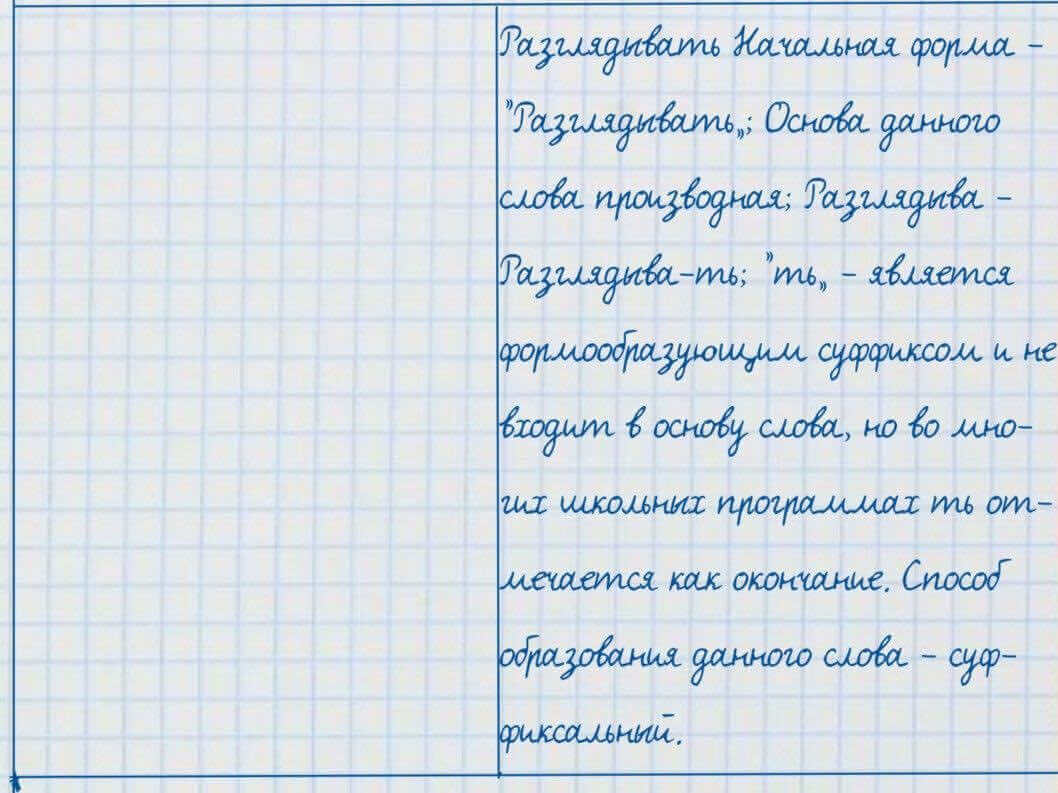 Разглядывать Начальная форма -
"Разглядывать„; Основа данного
слова производная; Разглядыва -
Разглядыва-ть; "ть„ - является
формообразующим суффиксом и не
входит в основу слова, но во мно-
гих школьных программах ть от-
мечается как окончание. Способ
образования данного слова - суф-
фиксальный.